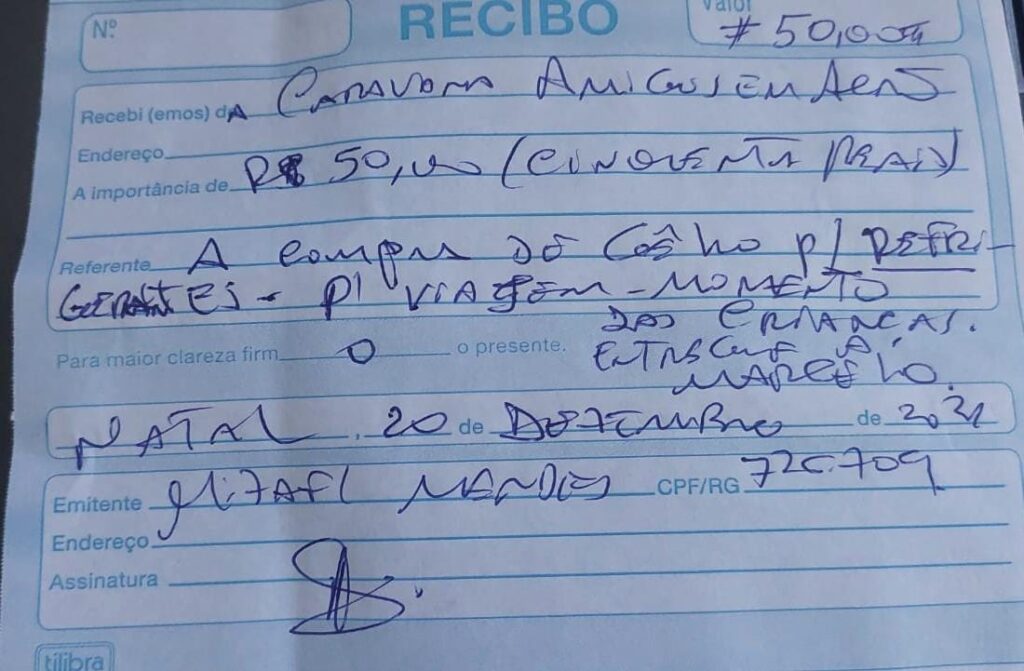 Nº
RECIBO
Valor
# 50,00 #
Recebi (emos) dA CARAVANA AMIGOS EM AÇÃO
Endereço
A importância de R$ 50,00 (CINQUENTA REAIS)
Referente A compra DO Gêlho p/ REFRI-
GERANTES - P/ VIAGEM - MOMENTO
DAS CRIANÇAS.
Para maior clareza firm o o presente.
ENTREGUE A
MARCÊLO.
NATAL, 20 de DEZEMBRO de 2021
Emitente MIZAEL MENDES CPF/RG 726.709
Endereço
Assinatura
tilibra